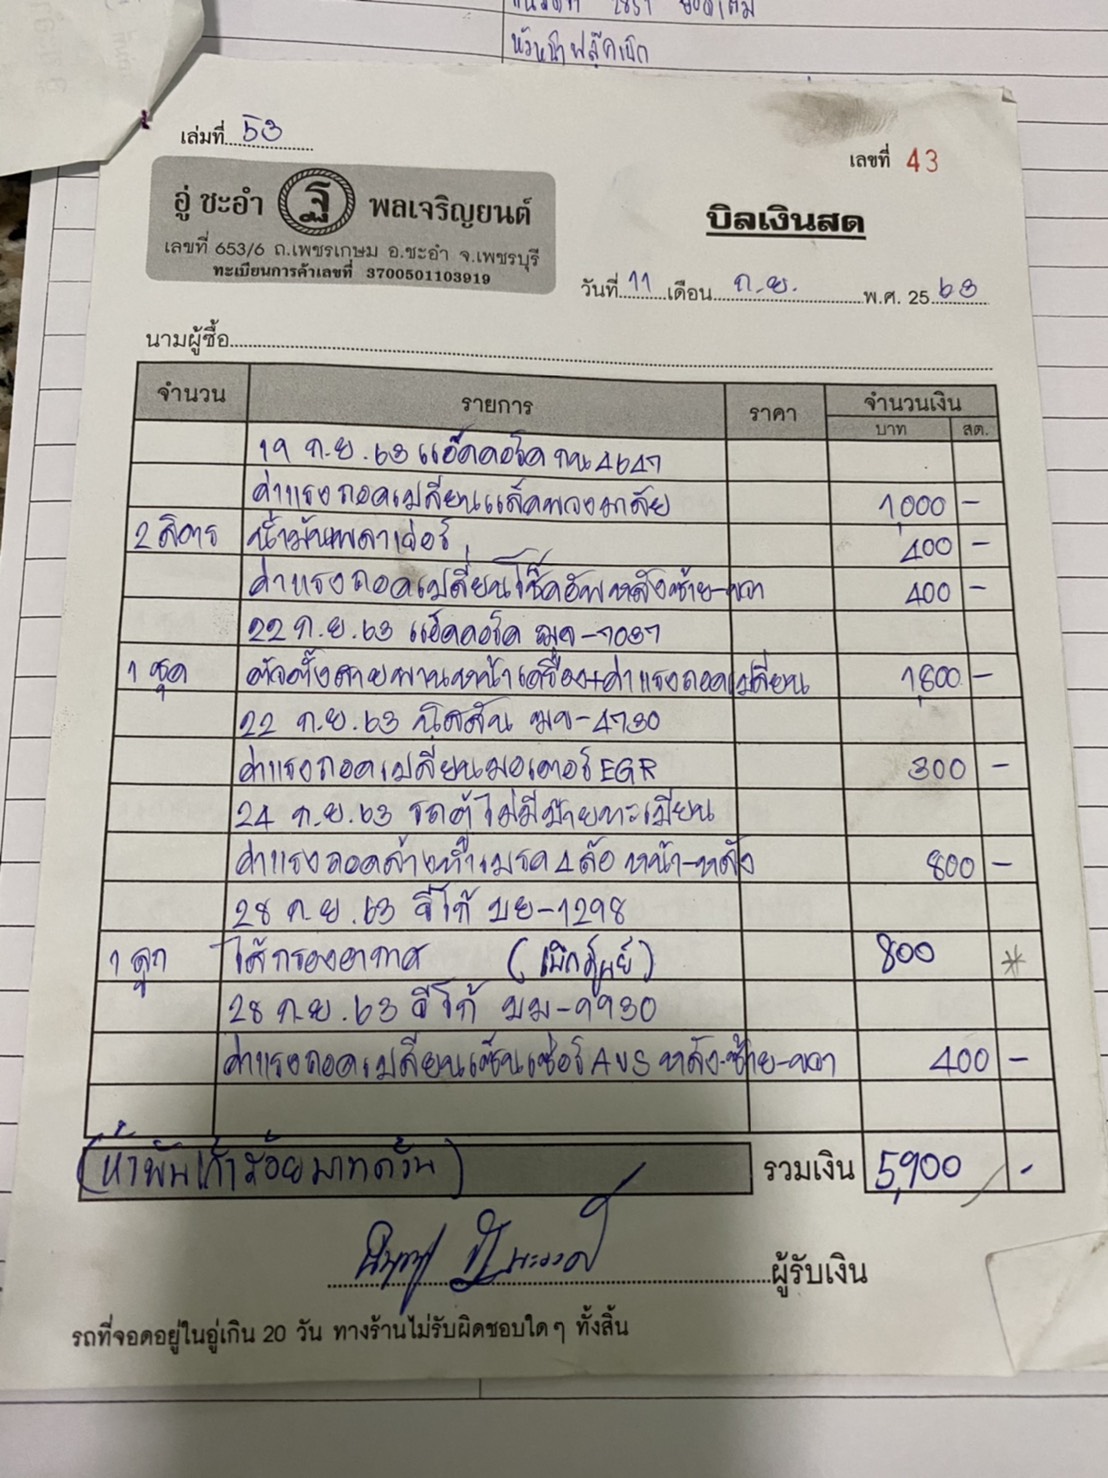 หัวหน้าฟลุ๊คเบิก
เล่มที่ 53
เลขที่ 43
อู่ ชะอำ ฐ พลเจริญยนต์
เลขที่ 653/6 ถ.เพชรเกษม อ.ชะอำ จ.เพชรบุรี
ทะเบียนการค้าเลขที่ 3700501103919
บิลเงินสด
วันที่ 11 เดือน ก.ย. พ.ศ. 2563
นามผู้ซื้อ
จำนวน รายการ ราคา จำนวนเงิน
บาท สต.
19 ก.ย.63 แอ๊คคอร์ด กน 4647
ค่าแรงถอดเปลี่ยนแล็คพวงมาลัย 1,000 -
2 ลิตร น้ำมันเพาเวอร์ 400 -
ค่าแรงถอดเปลี่ยนโช๊คอัพหลังซ้าย-ขวา 400 -
22 ก.ย.63 แอ๊คคอร์ด ฌข-7037
1 ชุด ตัวตั้งสายพานหน้าเครื่อง+ค่าแรงถอดเปลี่ยน 1,800 -
22 ก.ย.63 นิสสัน ฆข-4730
ค่าแรงถอดเปลี่ยนมอเตอร์ EGR 300 -
24 ก.ย.63 รถตู้ ไม่มีป้ายทะเบียน
ค่าแรงถอดล้างทำเบรค 4 ล้อ หน้า-หลัง 800 -
28 ก.ย.63 วีโก้ บย-1298
1 ลูก ไส้กรองอากาศ (เบิกศูนย์) 800 *
28 ก.ย.63 วีโก้ บม-9930
ค่าแรงถอดเปลี่ยนเซ็นเซ่อร์ ABS หลัง-ซ้าย-ขวา 400 -
(ห้าพันเก้าร้อยบาทถ้วน) รวมเงิน 5,900 -
ผู้รับเงิน
รถที่จอดอยู่ในอู่เกิน 20 วัน ทางร้านไม่รับผิดชอบใดๆ ทั้งสิ้น